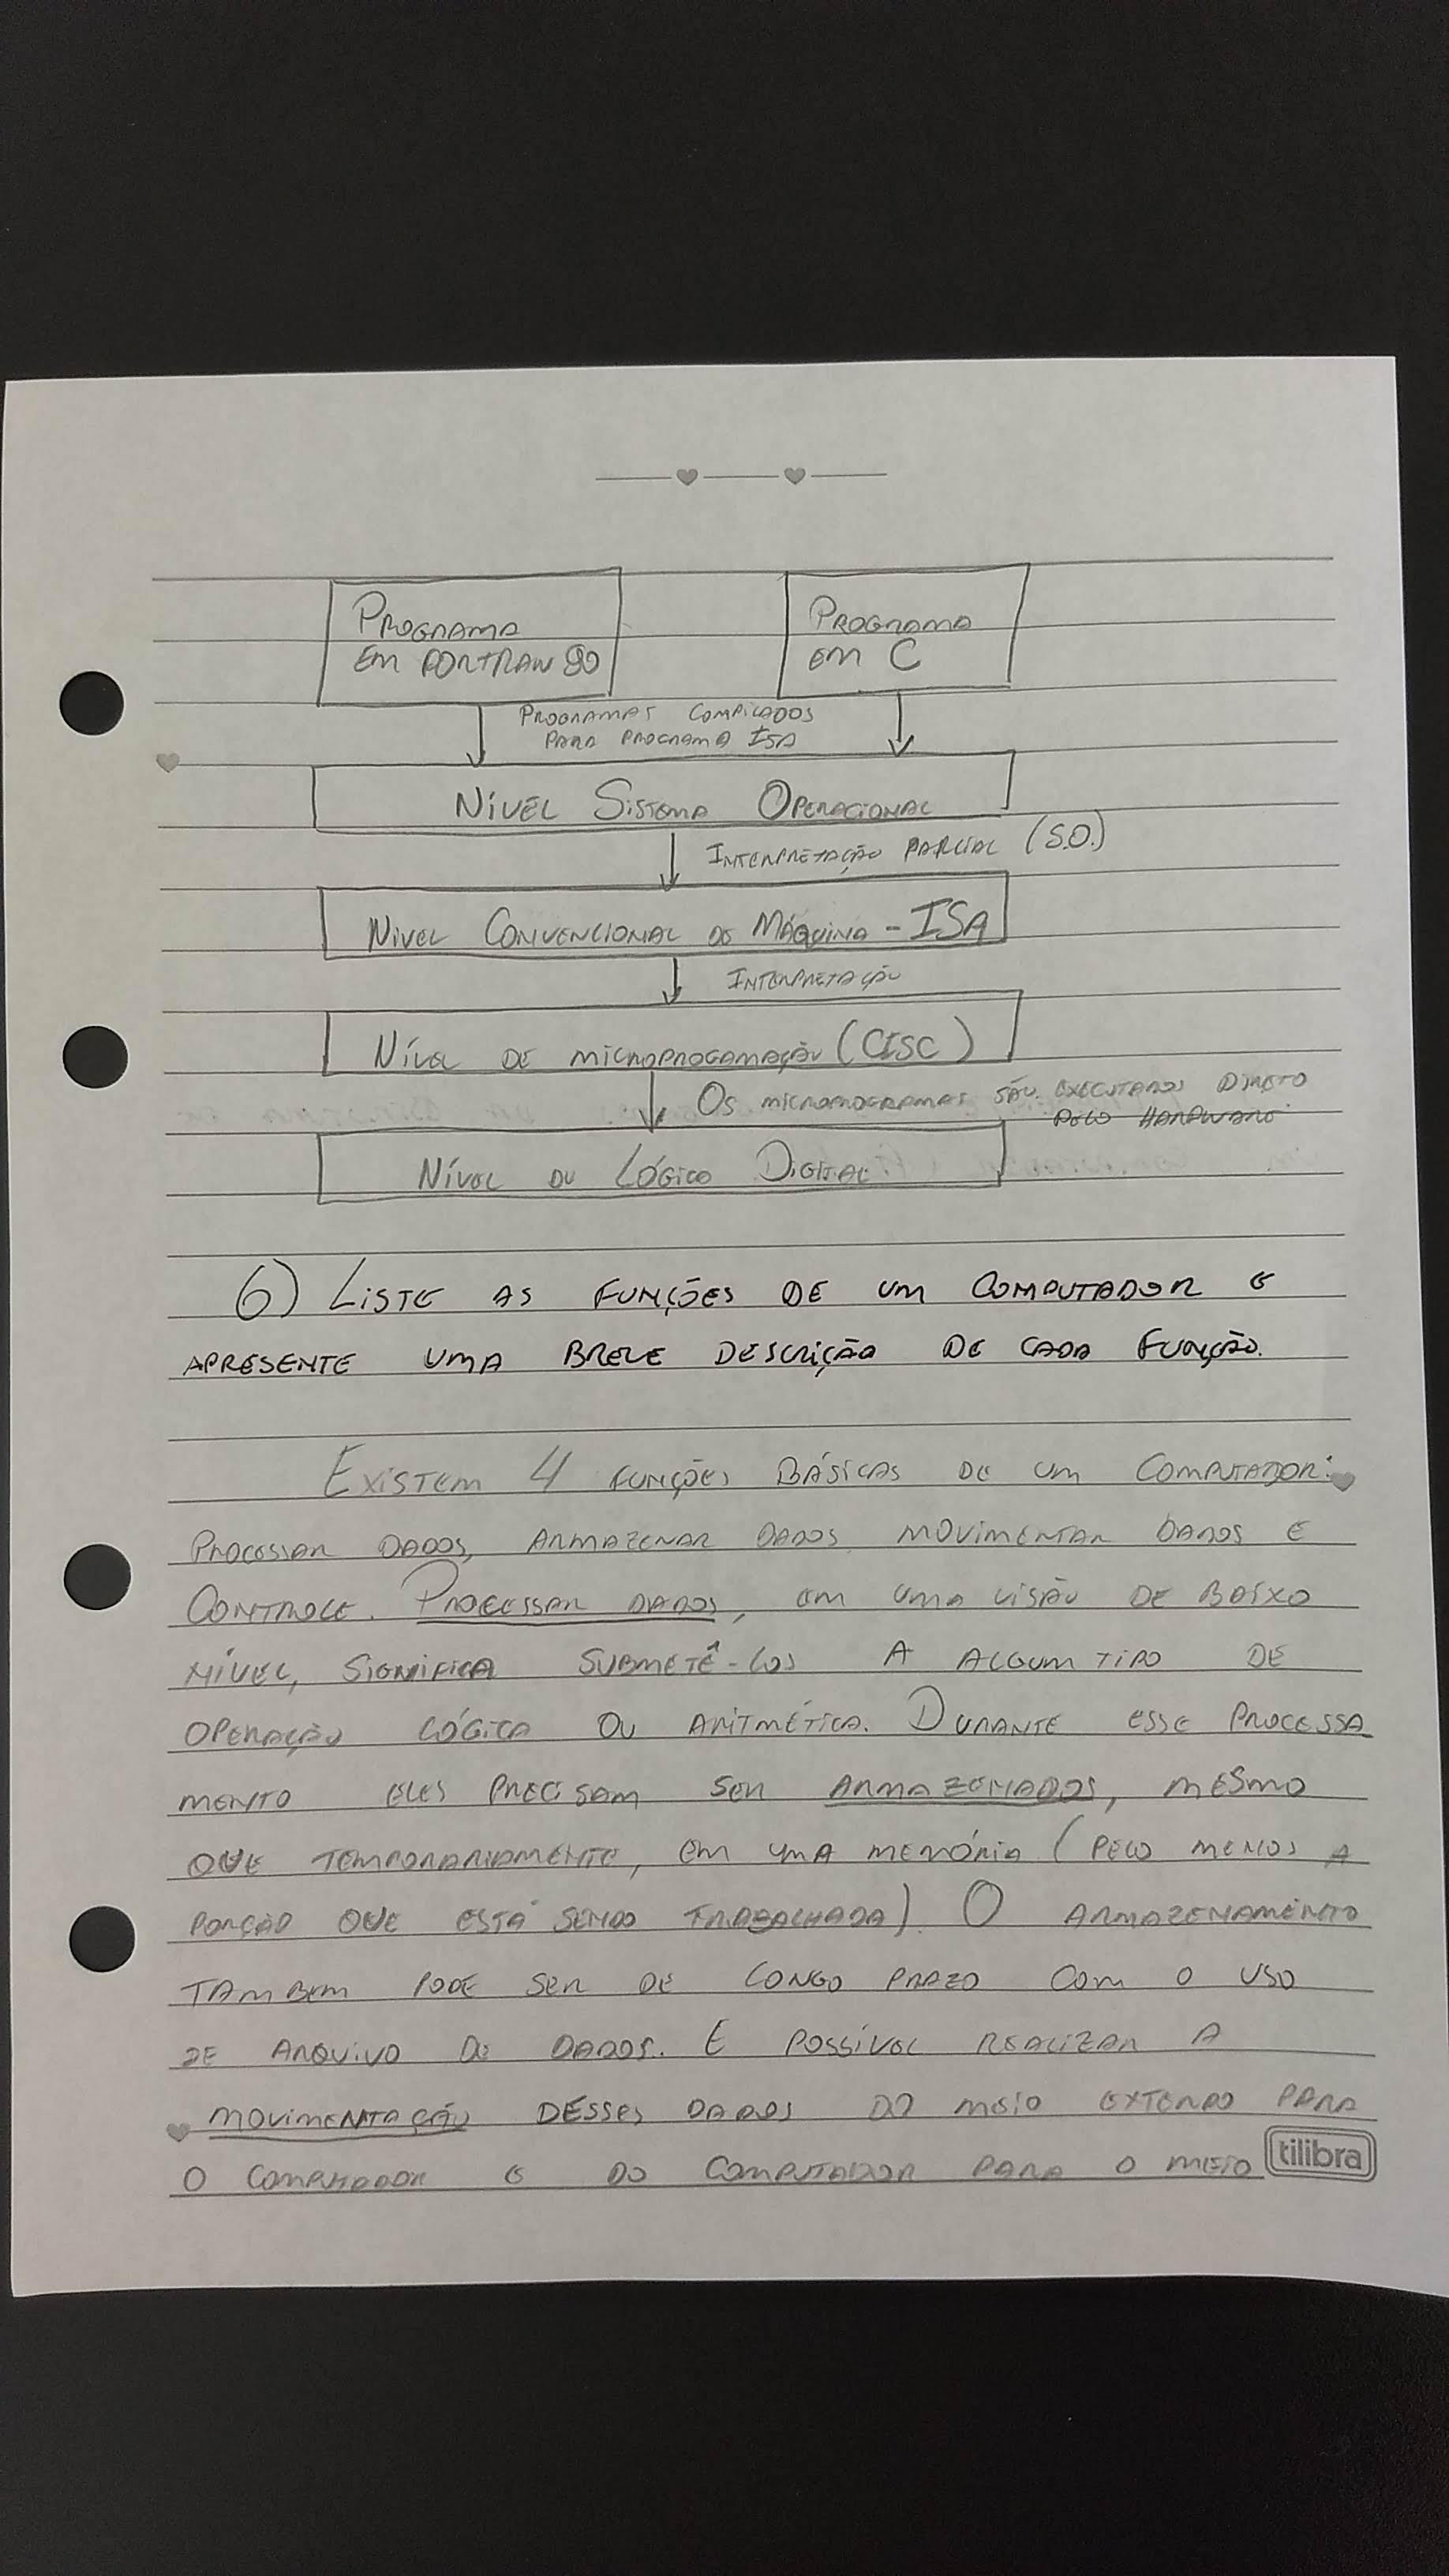 PROGRAMA
EM FORTRAN 90
PROGRAMA
EM C
PROGRAMAS COMPILADOS
PARA PROGRAMA ISA
NÍVEL SISTEMA OPERACIONAL
INTERPRETAÇÃO PARCIAL (S.O.)
NIVEL CONVENCIONAL DE MÁQUINA - ISA
INTERPRETAÇÃO
NÍVEL DE MICROPROGAMAÇÃO (CISC)
OS MICROPROGRAMAS SÃO EXECUTADOS DIRETO
PELO HARDWARE.
NÍVEL DU LÓGICO DIGITAL
6) LISTE AS FUNÇÕES DE UM COMPUTADOR E
APRESENTE UMA BREVE DESCRIÇÃO DE CADA FUNÇÃO.
EXISTEM 4 FUNÇÕES BÁSICAS DE UM COMPUTADOR:
PROCESSAR DADOS, ARMAZENAR DADOS, MOVIMENTAR DADOS E
CONTROLE. PROCESSAR DADOS, EM UMA VISÃO DE BAIXO
NÍVEL, SIGNIFICA SUBMETÊ-LOS A ALGUM TIPO DE
OPERAÇÃO LÓGICA OU ARITMÉTICA. DURANTE ESSE PROCESSA
MENTO ELES PRECISAM SER ARMAZENADOS, MESMO
QUE TEMPORARIAMENTE, EM UMA MEMÓRIA (PELO MENOS A
PORÇÃO QUE ESTÁ SENDO TRABALHADA). O ARMAZENAMENTO
TAMBEM PODE SER DE LONGO PRAZO COM O USO
DE ARQUIVO DE DADOS. E POSSÍVEL REALIZAR A
MOVIMENTAÇÃO DESSES DADOS DO MEIO EXTERNO PARA
O COMPUTADOR E DO COMPUTADOR PARA O MEIO
tilibra